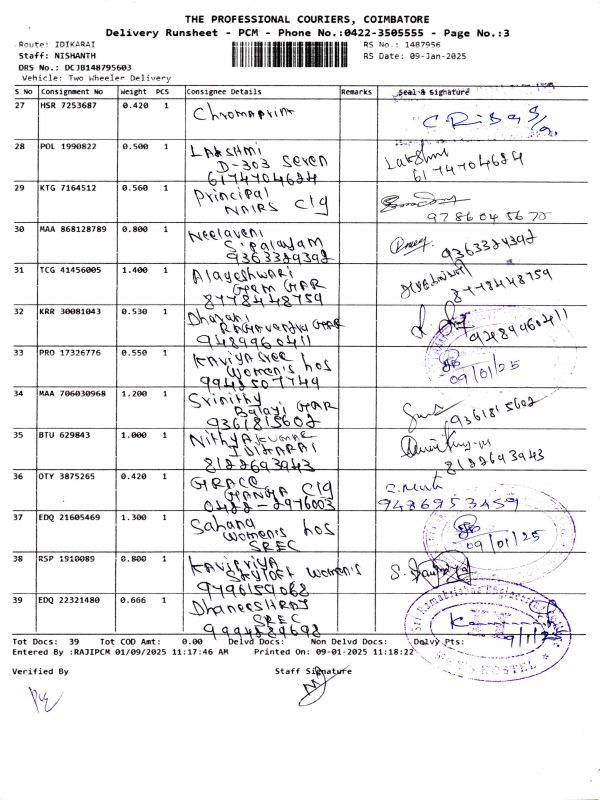 THE PROFESSIONAL COURIERS, COIMBATORE
Delivery Runsheet - PCM - Phone No.:0422-3505555 - Page No.:3
Route: IDIKARAI RS No.: 1487956
Staff: NISHANTH RS Date: 09-Jan-2025
DRS No.: DCJB148795603
Vehicle: Two Wheeler Delivery
S No Consignment No Weight PCS Consignee Details Remarks Seal & Signature
27 HSR 7253687 0.420 1 Chromaprint
28 POL 1990822 0.500 1 LAKSHMI Lakshmi
D-303 Seven 6174704684
6174704684
29 KTG 7164512 0.560 1 Principal
NAIRS clg 9786045675
30 MAA 868128789 0.800 1 Neelaveni
S.Palayam 9363324392
9363324392
31 TCG 41456005 1.400 1 Alayeshwari
Gem GAR 8778448759
8778448759
32 KRR 30081043 0.530 1 Dharani
Ragavendra GAR 9489960411
9489960411
33 PRO 17326776 0.550 1 Kaviya sree
Women's hos 09/01/25
9942507749
34 MAA 706030968 1.200 1 Srinithy
Balaji GAR 9361815602
9361815602
35 BTU 629843 1.000 1 Nithya KUMAR
IDIKARAI 8122693943
8122693943
36 OTY 3875265 0.420 1 GRACE
GANGA clg 9486953459
0422-2976003
37 EDQ 21605469 1.300 1 Sahana
Women's hos 09/01/25
SREC
38 RSP 1910089 0.800 1 Kavipriya
SKYLOFT women's
9796159068
39 EDQ 22321480 0.666 1 DhaneesHRAJ
SREC 9/1/25
9994889698 HOSTEL
Tot Docs: 39 Tot COD Amt: 0.00 Delvd Docs: Non Delvd Docs: Delvy Pts:
Entered By :RAJIPCM 01/09/2025 11:17:46 AM Printed On: 09-01-2025 11:18:22
Verified By Staff Signature